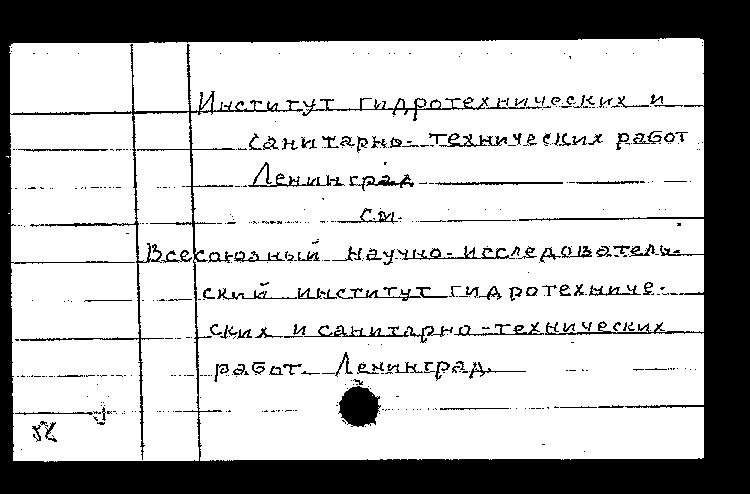 Институт гидротехнических и
санитарно-технических работ
Ленинград
см.
Всесоюзный научно-исследователь-
ский институт гидротехниче-
ских и санитарно-технических
работ. Ленинград.